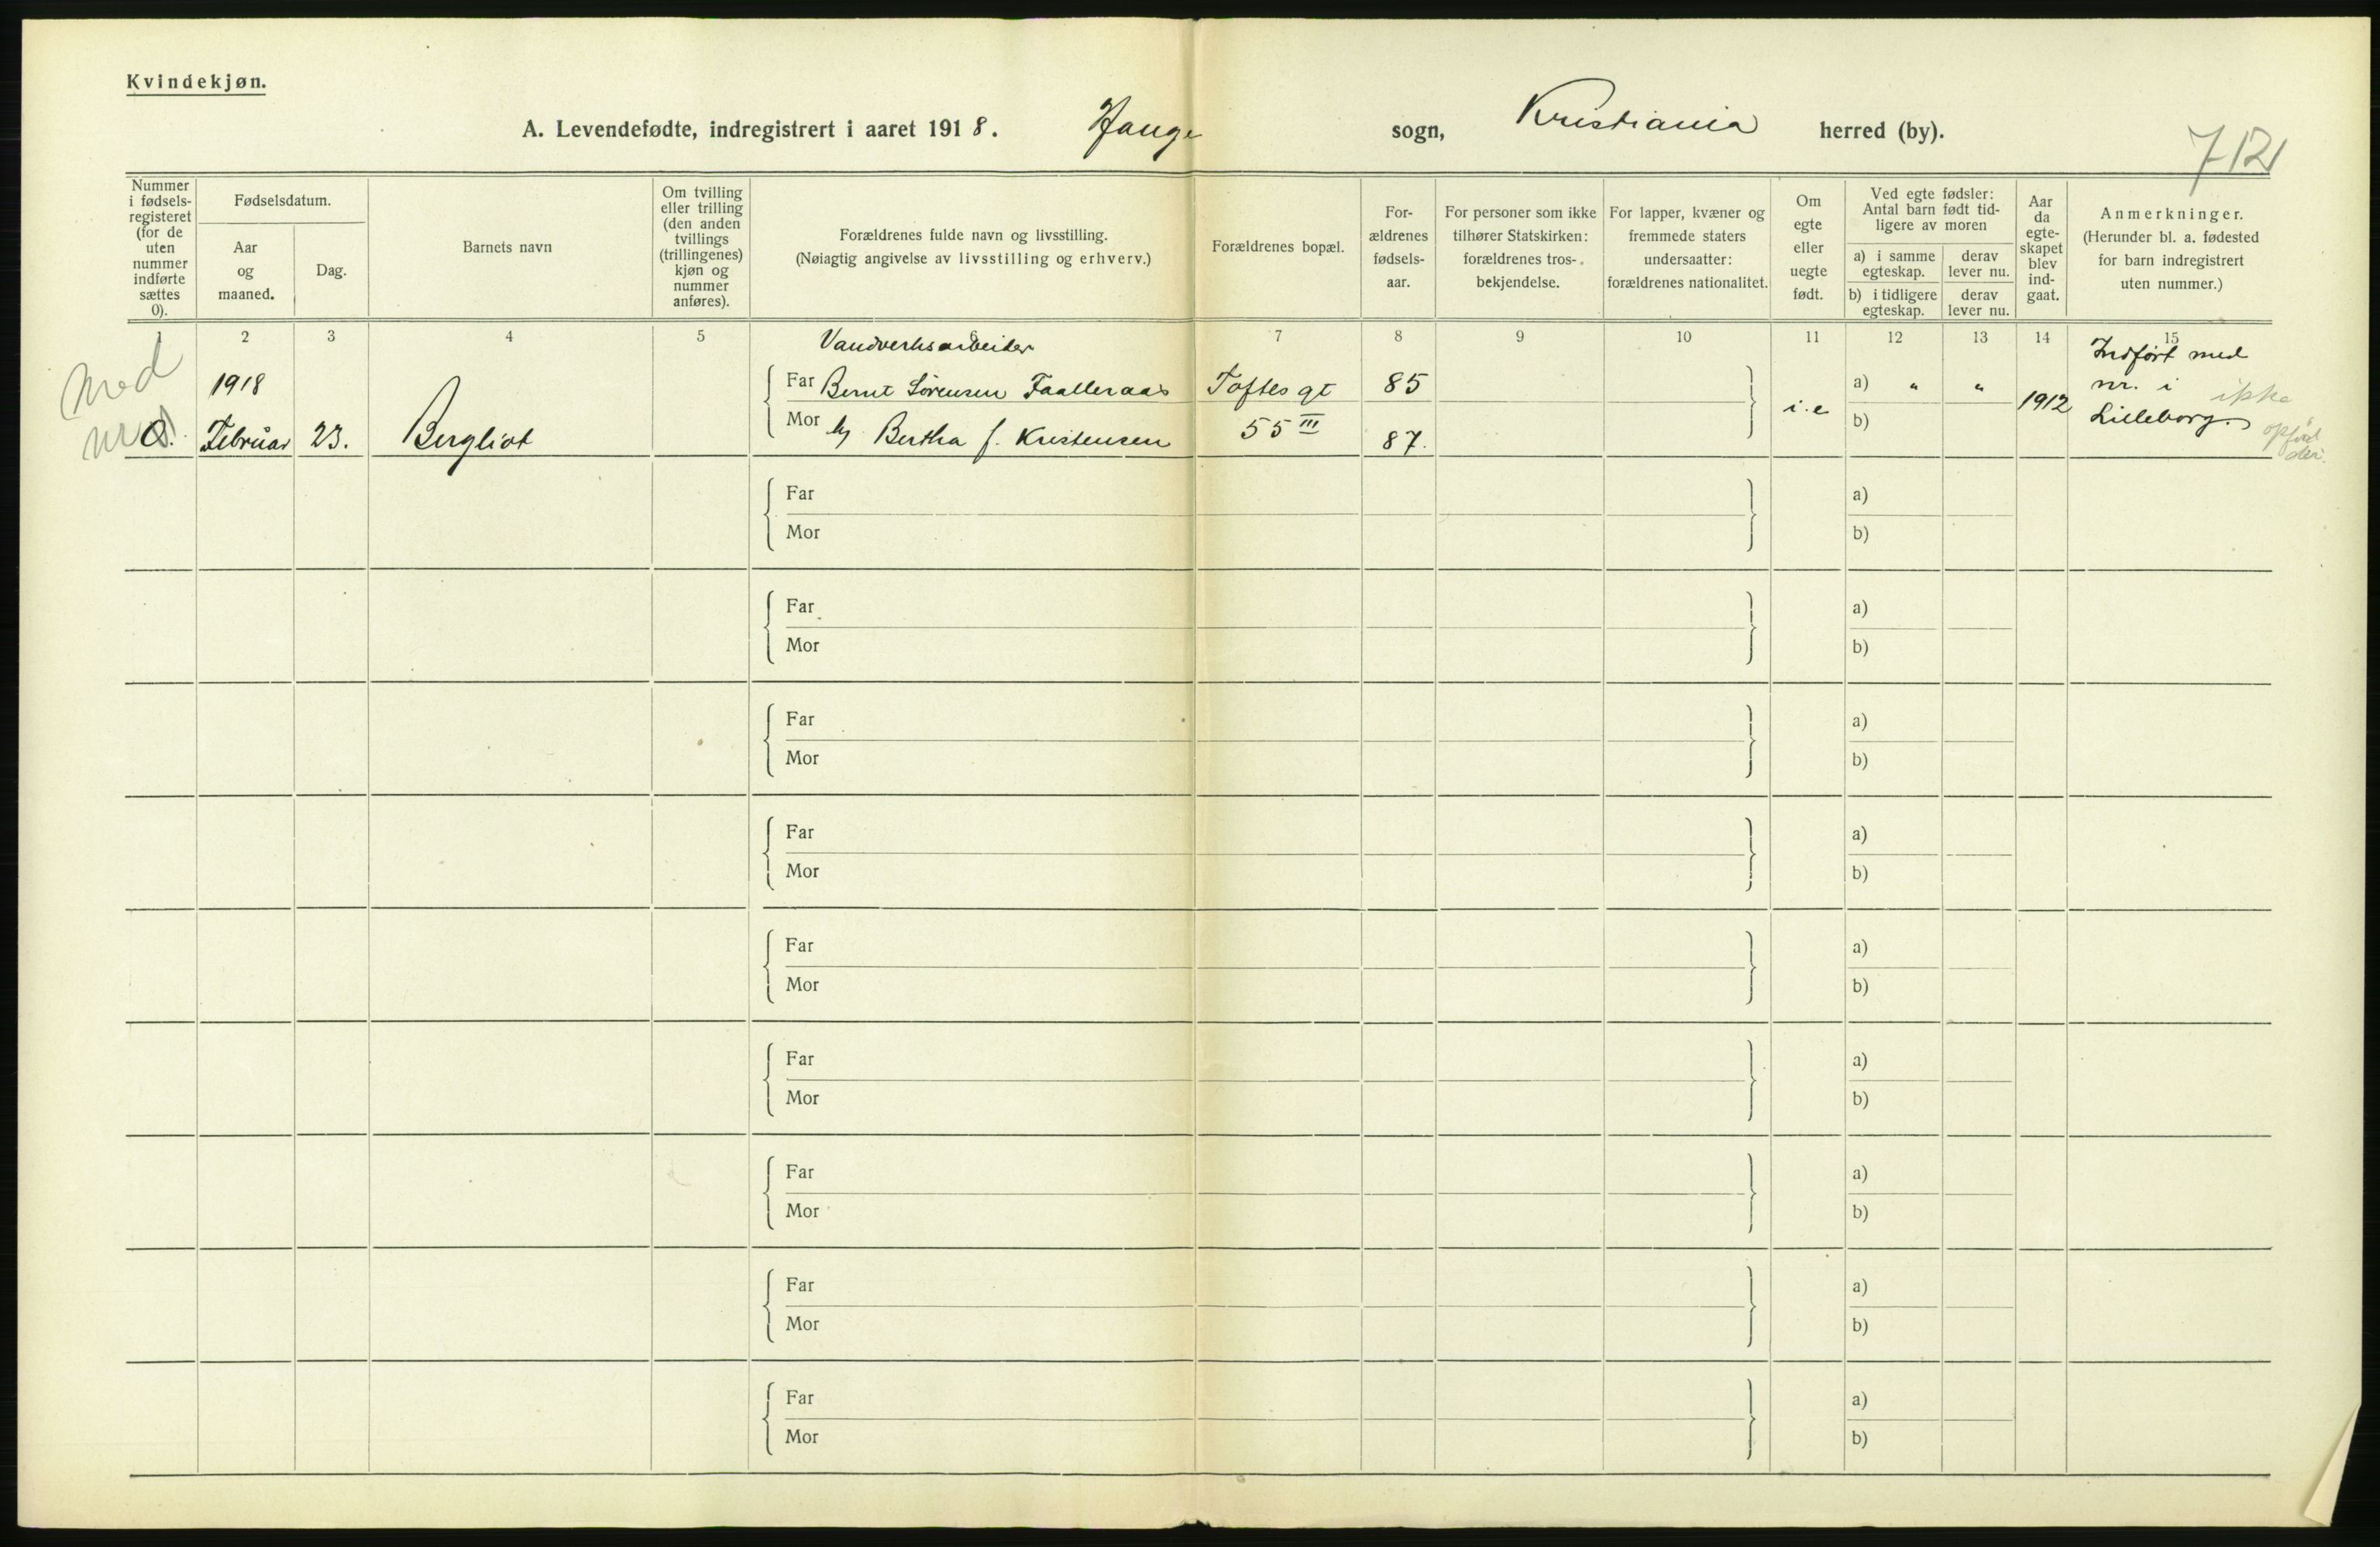 Kvindekjøn.
A. Levendefødte, indregistrert i aaret 1918. Hauge sogn, Kristiania herred (by).
712
Nummer i fødselsregisteret (for de uten nummer indførte sættes 0).
Fødselsdatum.
Aar og maaned.
Dag.
Barnets navn
Om tvilling eller trilling (den anden tvillings (trillingenes) kjøn og nummer anføres).
Forældrenes fulde navn og livsstilling.
(Nøiagtig angivelse av livsstilling og erhverv.)
Forældrenes bopæl.
Forældrenes fødselsaar.
For personer som ikke tilhører Statskirken: forældrenes trosbekjendelse.
For lapper, kvæner og fremmede staters undersaatter: forældrenes nationalitet.
Om egte eller uegte født.
Ved egte fødsler: Antal barn født tidligere av moren
a) i samme egteskap.
derav lever nu.
b) i tidligere egteskap.
derav lever nu.
Aar da egteskapet blev indgaat.
Anmerkninger.
(Herunder bl. a. fødested for barn indregistrert uten nummer.)
1 2 3 4 5 7 8 9 10 11 12 13 14 15
Med
0.
1918
Februar 23.
Bergliot
Vandverksarbeider
Far Bernt Sørensen Faalleraas
Mor h Bertha f. Kristensen
Toftes gt
55 III
85
87.
i.e
a) " "
b)
1912
Indført med
nr. i
Lilleborg.
ikke
opført
der.
Far a)
Mor b)
Far a)
Mor b)
Far a)
Mor b)
Far a)
Mor b)
Far a)
Mor b)
Far a)
Mor b)
Far a)
Mor b)
Far a)
Mor b)
Far a)
Mor b)